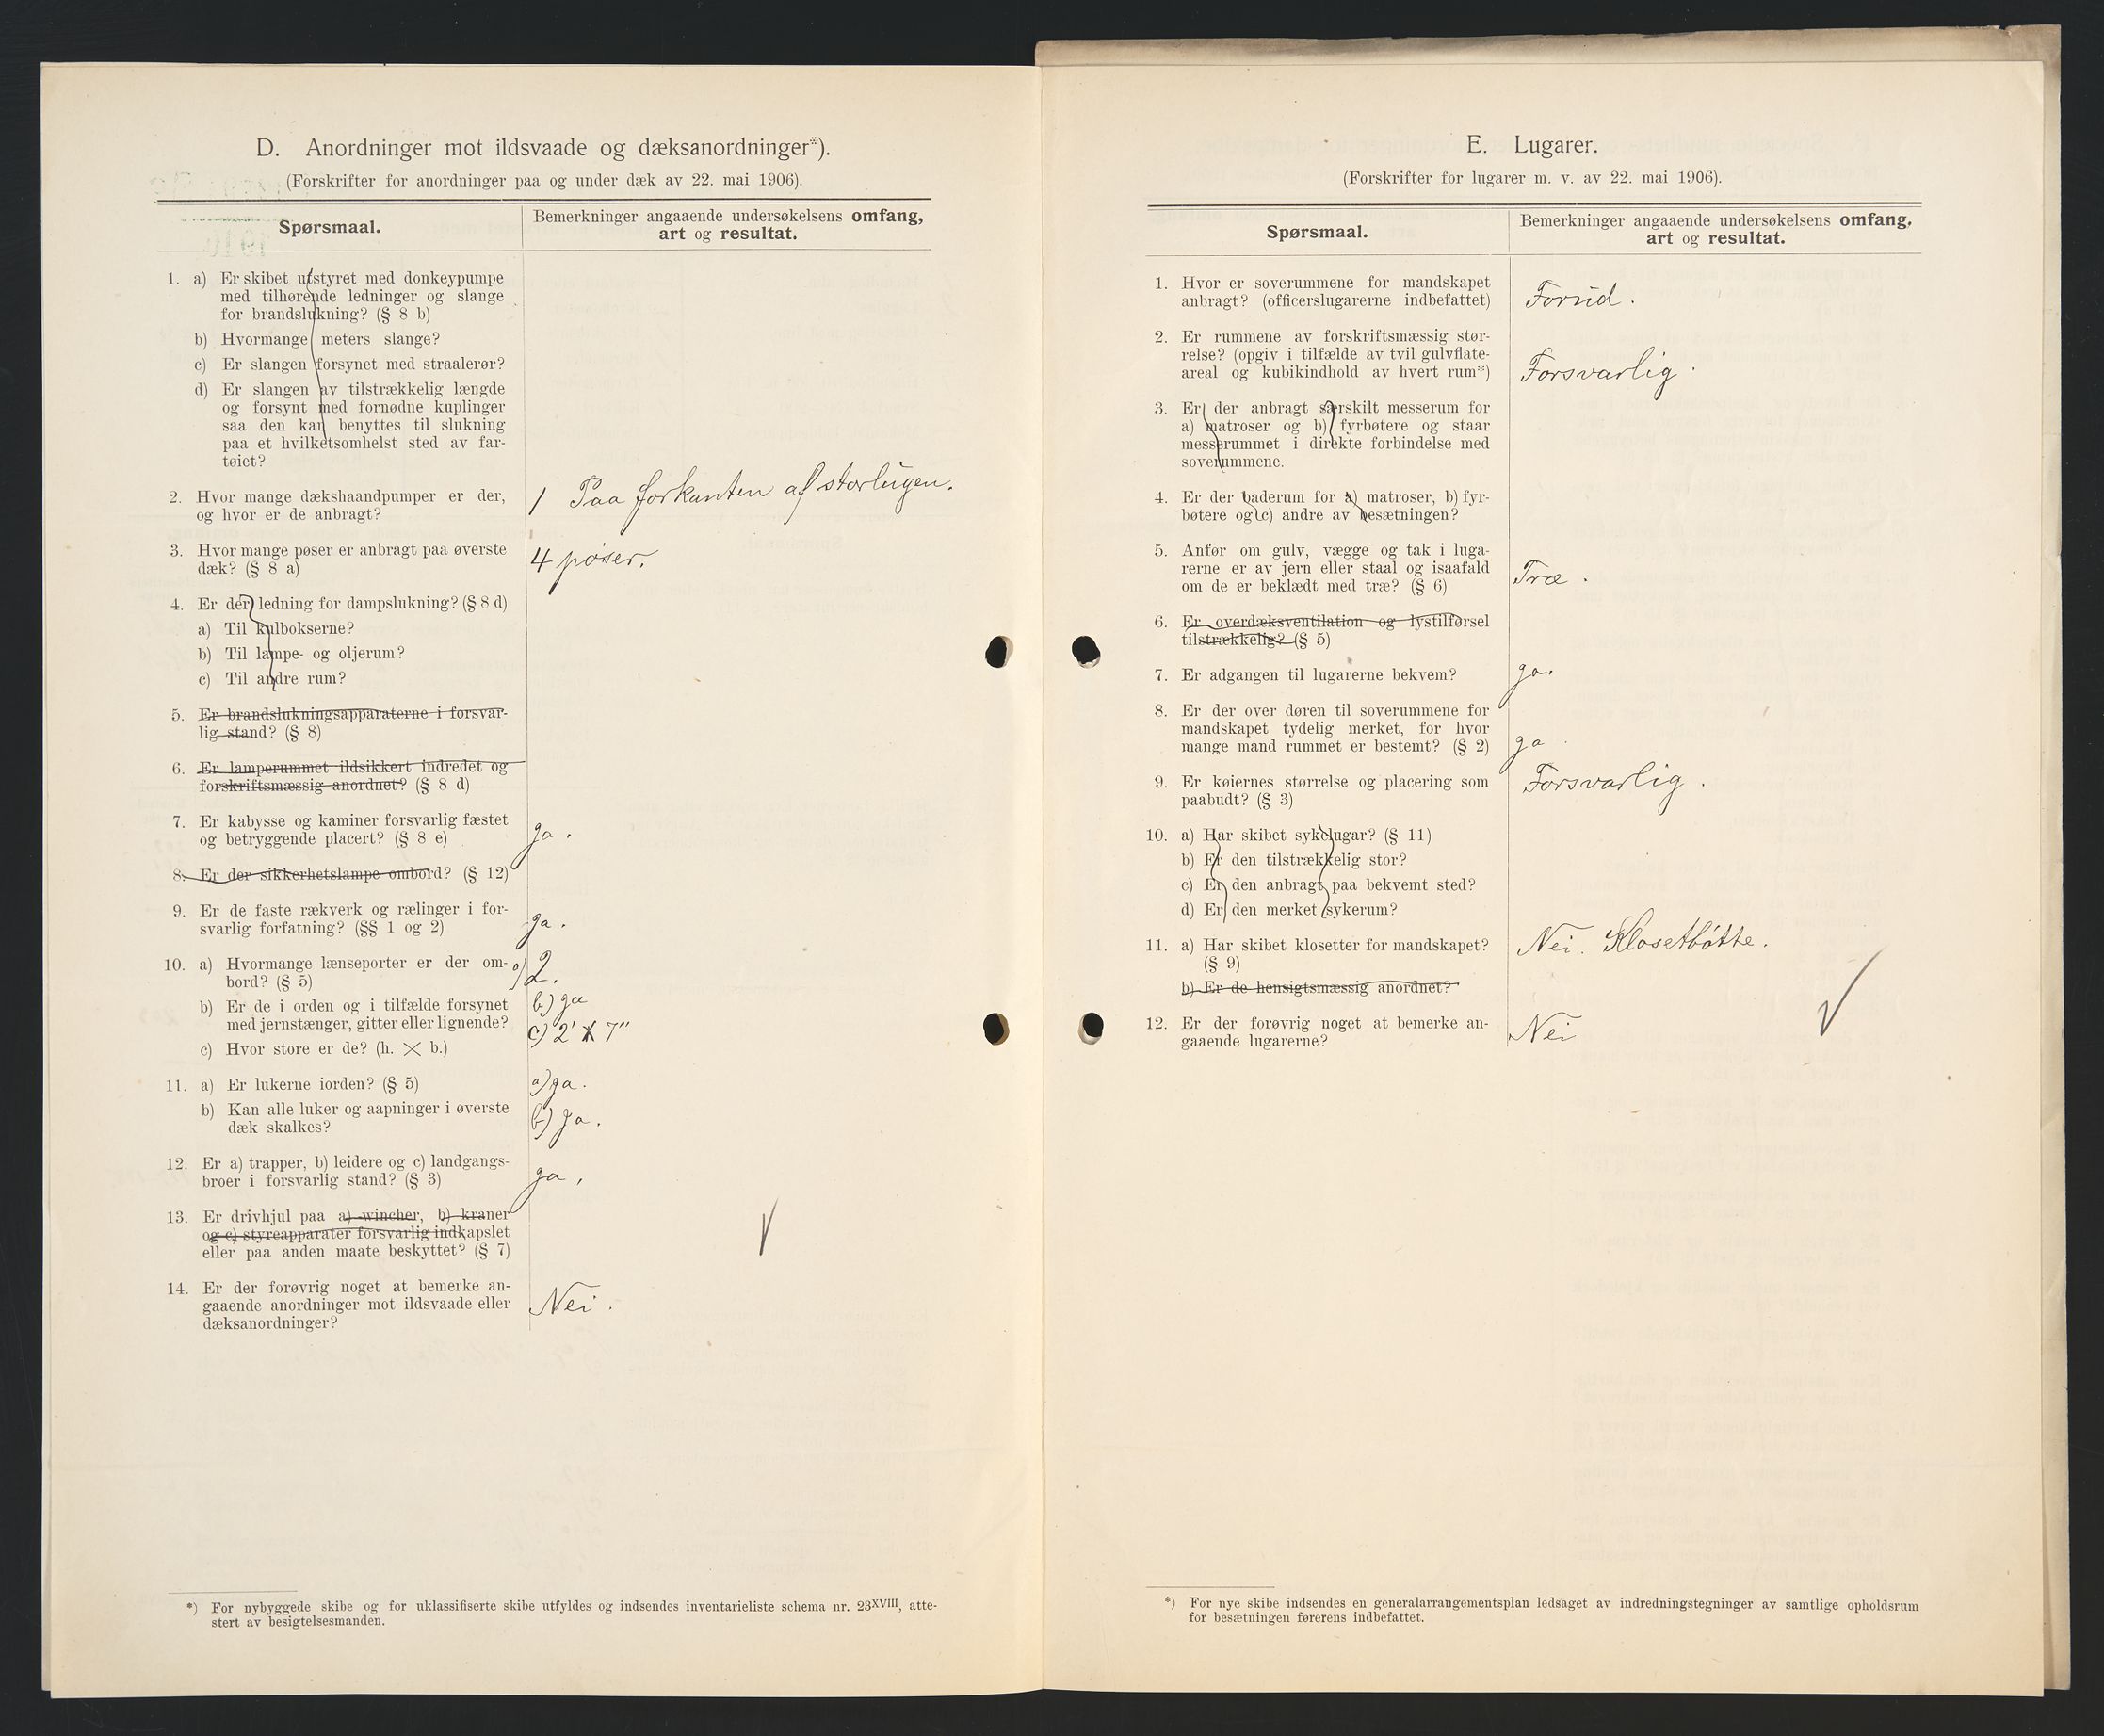 D. Anordninger mot ildsvaade og dæksanordninger*).
(Forskrifter for anordninger paa og under dæk av 22. mai 1906).
Spørsmaal.
Bemerkninger angaaende undersøkelsens omfang,
art og resultat.
1. a) Er skibet utstyret med donkeypumpe
med tilhørende ledninger og slange
for brandslukning? (§ 8 b)
b) Hvormange meters slange?
c) Er slangen forsynet med straalerør?
d) Er slangen av tilstrækkelig længde
og forsynt med fornødne kuplinger
saa den kan benyttes til slukning
paa et hvilketsomhelst sted av far-
tøiet?
2. Hvor mange dækshaandpumper er der,
og hvor er de anbragt?
1 Paa forkanten af storlugen.
3. Hvor mange pøser er anbragt paa øverste
dæk? (§ 8 a)
4 pöser.
4. Er der ledning for dampslukning? (§ 8 d)
a) Til kulbokserne?
b) Til lampe- og oljerum?
c) Til andre rum?
5. Er brandslukningsapparaterne i forsvar-
lig stand? (§ 8)
6. Er lamperummet ildsikkert indredet og
forskriftsmæssig anordnet? (§ 8 d)
7. Er kabysse og kaminer forsvarlig fæstet
og betryggende placert? (§ 8 e)
ja.
8. Er der sikkerhetslampe ombord? (§ 12)
9. Er de faste rækverk og rælinger i for-
svarlig forfatning? (§§ 1 og 2)
ja.
10. a) Hvormange lænseporter er der om-
bord? (§ 5)
a) 2.
b) Er de i orden og i tilfælde forsynet
med jernstænger, gitter eller lignende?
b) ja
c) Hvor store er de? (h. × b.)
c) 2' × 7"
11. a) Er lukerne iorden? (§ 5)
a) ja.
b) Kan alle luker og aapninger i øverste
dæk skalkes?
b) ja.
12. Er a) trapper, b) leidere og c) landgangs-
broer i forsvarlig stand? (§ 3)
ja.
13. Er drivhjul paa a) wincher, b) kraner
og c) styreapparater forsvarlig indkapslet
eller paa anden maate beskyttet? (§ 7)
14. Er der forøvrig noget at bemerke an-
gaaende anordninger mot ildsvaade eller
dæksanordninger?
Nei.
*) For nybyggede skibe og for uklassifiserte skibe utfyldes og indsendes inventarieliste schema nr. 23XVIII, atte-
stert av besigtelsesmanden.
E. Lugarer.
(Forskrifter for lugarer m. v. av 22. mai 1906).
Spørsmaal.
Bemerkninger angaaende undersøkelsens omfang,
art og resultat.
1. Hvor er soverummene for mandskapet
anbragt? (officerslugarerne indbefattet)
Forud.
2. Er rummene av forskriftsmæssig stør-
relse? (opgiv i tilfælde av tvil gulvflate-
areal og kubikindhold av hvert rum*)
Forsvarlig.
3. Er der anbragt særskilt messerum for
a) matroser og b) fyrbøtere og staar
messerummet i direkte forbindelse med
soverummene.
4. Er der baderum for a) matroser, b) fyr-
bøtere og c) andre av besætningen?
5. Anfør om gulv, vægge og tak i luga-
rerne er av jern eller staal og isaafald
om de er beklædt med træ? (§ 6)
Træ.
6. Er overdæksventilation og lystilførsel
tilstrækkelig? (§ 5)
7. Er adgangen til lugarerne bekvem?
ja.
8. Er der over døren til soverummene for
mandskapet tydelig merket, for hvor
mange mand rummet er bestemt? (§ 2)
ja
9. Er køiernes størrelse og placering som
paabudt? (§ 3)
Forsvarlig.
10. a) Har skibet sykelugar? (§ 11)
b) Er den tilstrækkelig stor?
c) Er den anbragt paa bekvemt sted?
d) Er den merket sykerum?
11. a) Har skibet klosetter for mandskapet?
(§ 9)
Nei. Klosetbötte.
b) Er de hensigtsmæssig anordnet?
12. Er der forøvrig noget at bemerke an-
gaaende lugarerne?
Nei
*) For nye skibe indsendes en generalarrangementsplan ledsaget av indredningstegninger av samtlige opholdsrum
for besætningen førerens indbefattet.